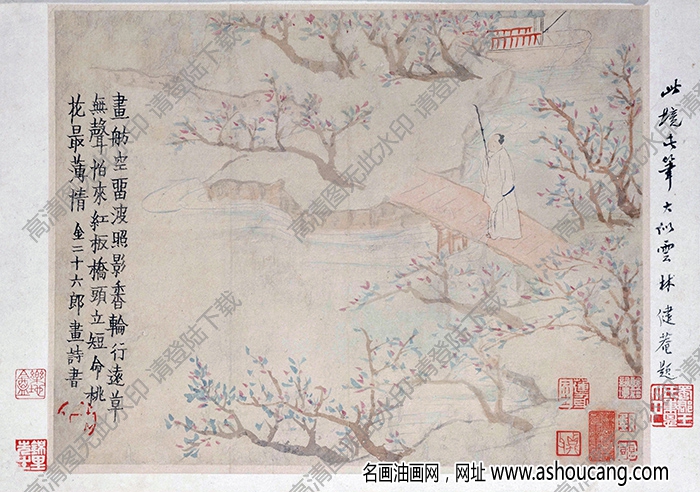 畫舫空留波照影香輪行遠草
無聲怕來紅板橋頭立短命桃
花最薄情 金二十六郎畫詩書
此境此筆大似雲林 健菴題
高清图无此水印 请登陆下载
名画油画网，网址 www.ashoucang.com